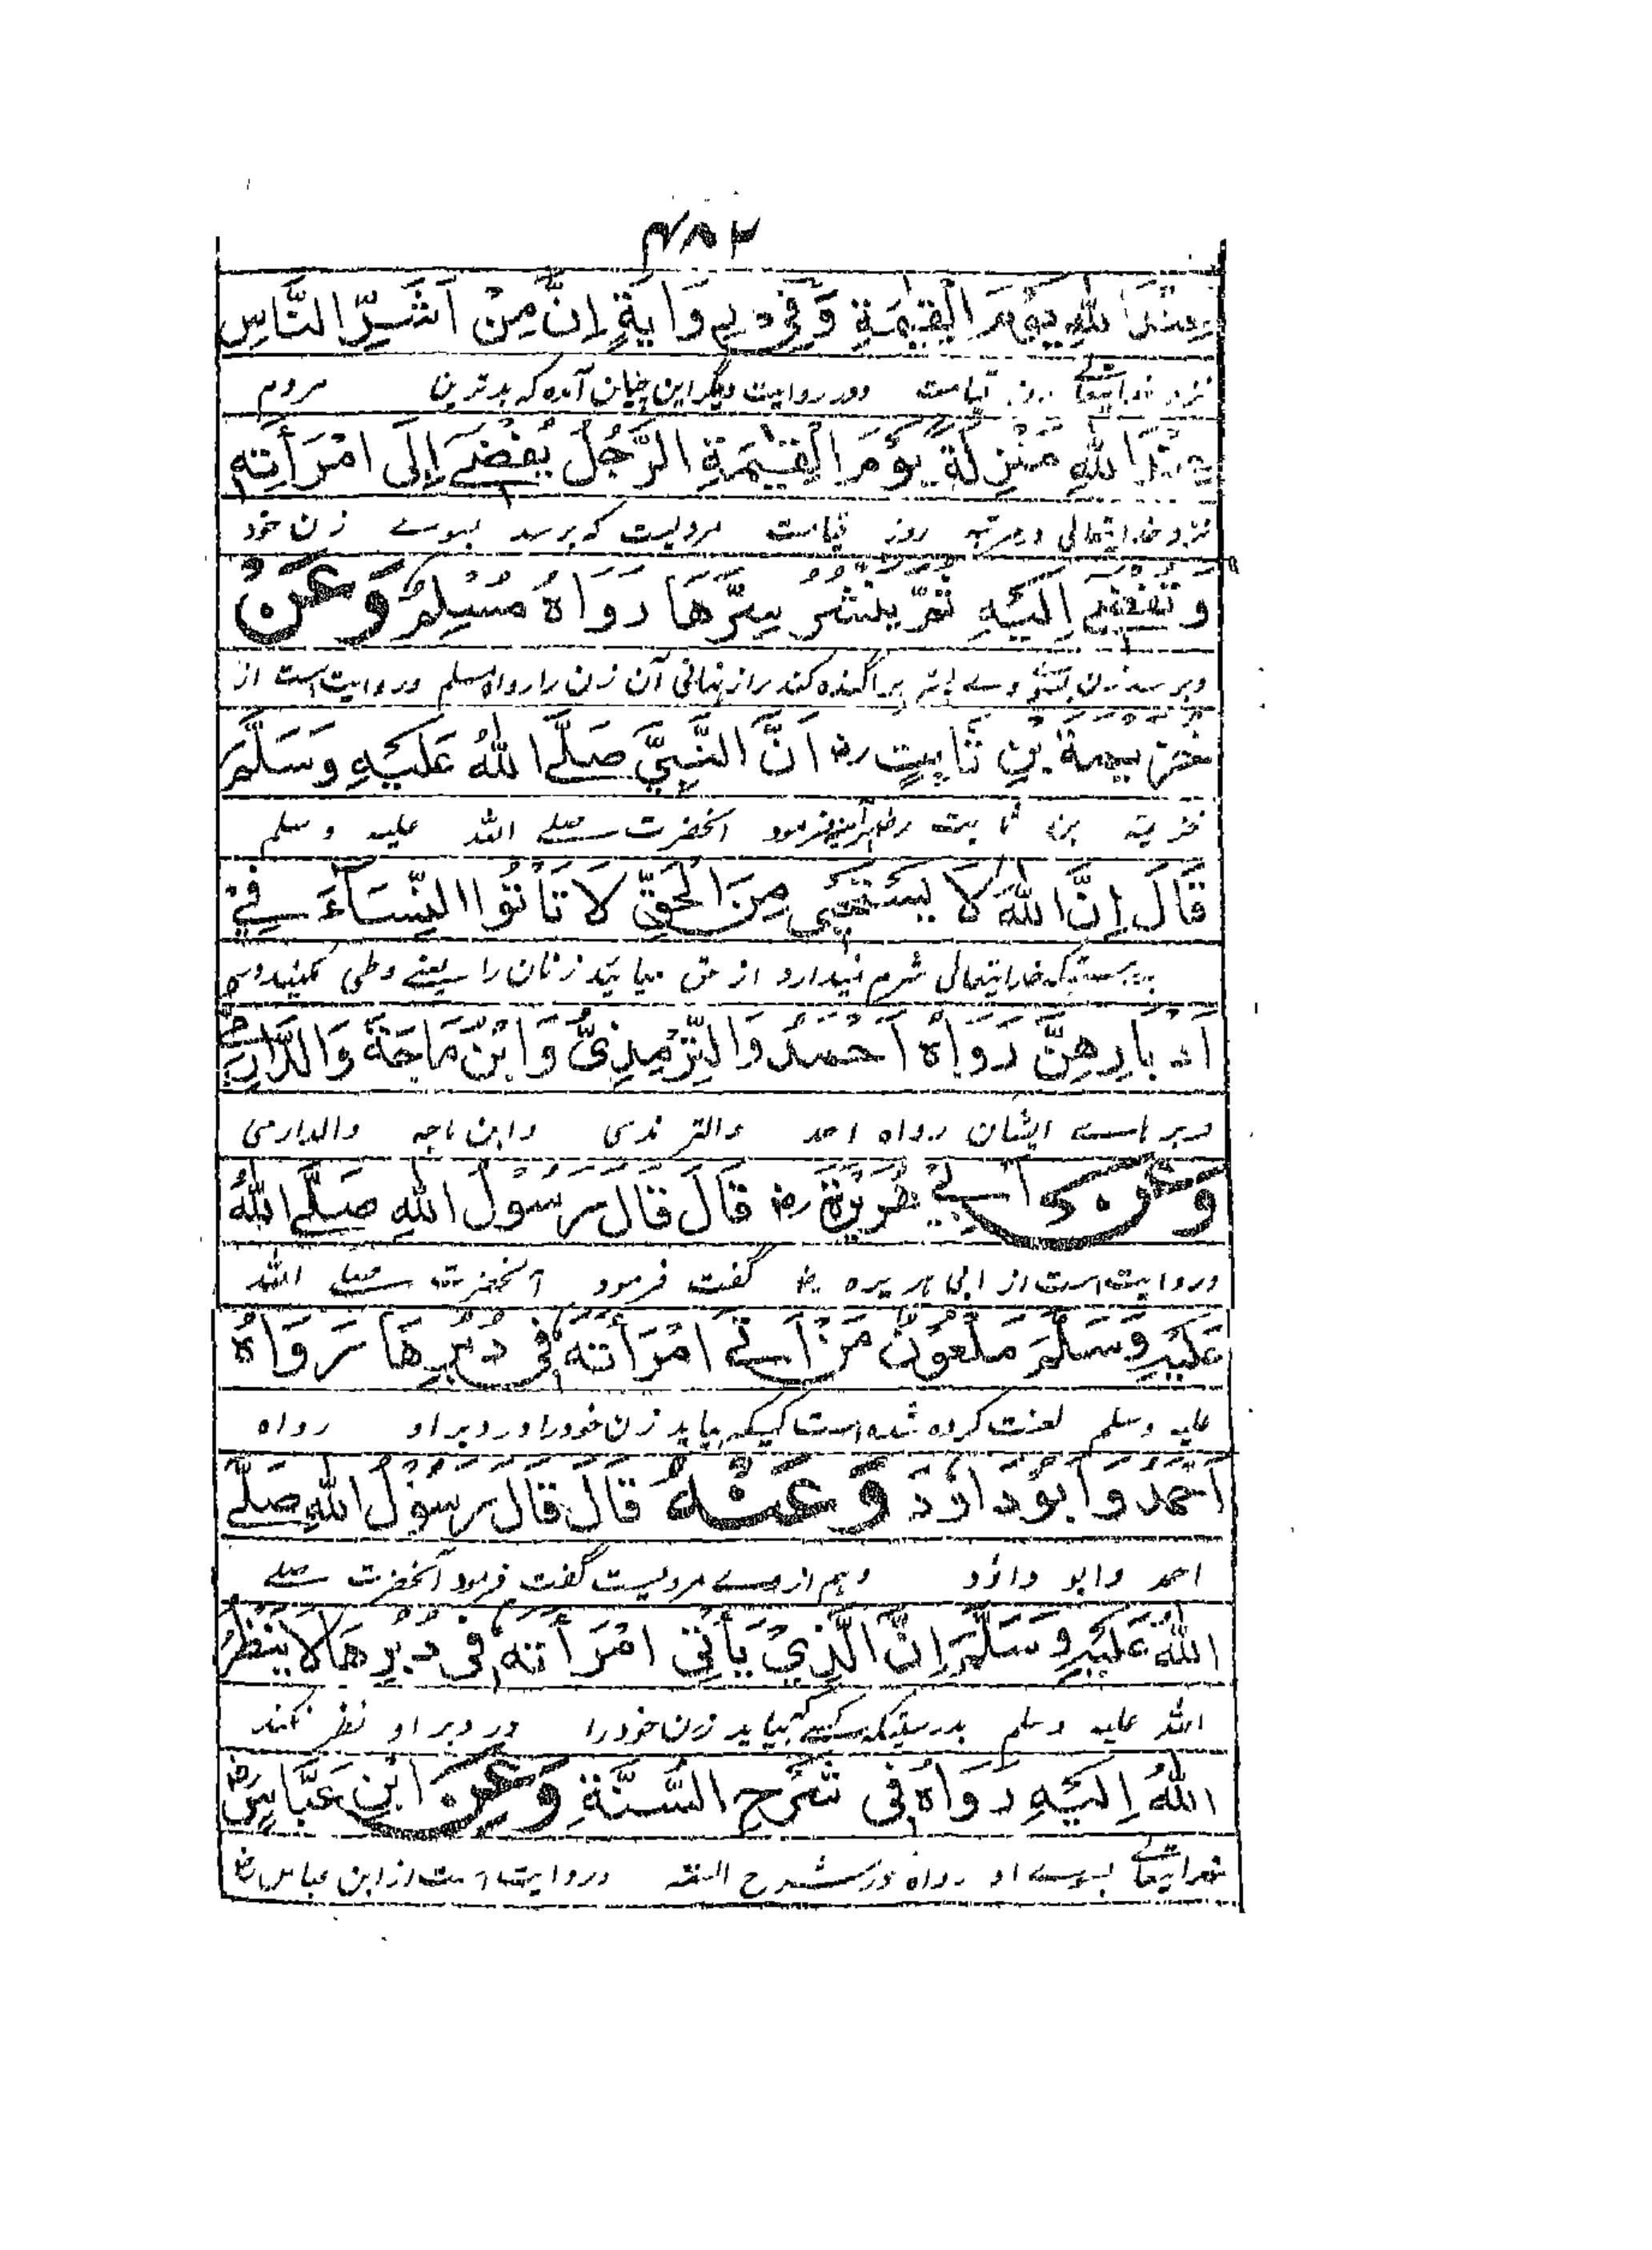 ۴۸۲
عِنْدَ اللّٰهِ يَوْمَ الْقِيٰمَةِ وَفِيْ رِوَايَةٍ اِنَّ مِنْ اَشَرِّ النَّاسِ
نزد خدایتعالے روز قیامت ودر روایت دیگر این چنان آمده که بدترین مردم
عِنْدَ اللّٰهِ مَنْزِلَةً يَوْمَ الْقِيٰمَةِ الرَّجُلُ يُفْضِے اِلٰى امْرَأَتِهٖ
نزد خدایتعالی در مرتبه روز قیامت مردیست که برسد بسوے زن خود
وَتُفْضِے اِلَيْهِ ثُمَّ يَنْشُرُ سِرَّهَا رَوَاهُ مُسْلِمٌ وَعَنْ
وبرسد زن بسوے وے پستر پراگنده کند راز نهانی آن زن را رواه مسلم وروایت است از
خُزَيْمَةَ بْنِ ثَابِتٍ رض اَنَّ النَّبِيَّ صَلَّے اللّٰهُ عَلَيْهِ وَسَلَّمَ
خزیمة بن ثابت فرمود آنحضرت صلے الله علیه وسلم
قَالَ اِنَّ اللّٰهَ لَا يَسْتَحْيٖى مِنَ الْحَقِّ لَا تَأْتُوا النِّسَآءَ فِيْ
بدرستیکه خدایتعالی شرم نیدارد از حق میائید زنان را یعنے وطی مکنید در
اَدْبَارِهِنَّ رَوَاهُ اَحْمَدُ وَالتِّرْمِذِيُّ وَابْنُ مَاجَةَ وَالدَّارِمِيُّ
دبر هاے ایشان رواه احمد والترمذی وابن ماجه والدارمی
وَعَنْ اَبِيْ هُرَيْرَةَ رض قَالَ قَالَ رَسُوْلُ اللّٰهِ صَلَّے اللّٰهُ
وروایت است از ابی هریره رض گفت فرمود آنحضرت صلے الله
عَلَيْهِ وَسَلَّمَ مَلْعُوْنٌ مَنْ اَتٰے امْرَأَتَهٗ فِيْ دُبُرِهَا رَوَاهُ
علیه وسلم لعنت کرده شده است کسیکه بیاید زن خود را در دبر او رواه
اَحْمَدُ وَاَبُوْ دَاوٗدَ وَعَنْهُ قَالَ قَالَ رَسُوْلُ اللّٰهِ صَلَّے
احمد وابو داؤد وهم از وے مرویست گفت فرمود آنحضرت صلے
اللّٰهُ عَلَيْهِ وَسَلَّمَ اِنَّ الَّذِيْ يَأْتِيْ امْرَأَتَهٗ فِيْ دُبُرِهَا لَا يَنْظُرُ
الله علیه وسلم بدرستیکه کسیکه بیاید زن خود را در دبر او نظر نکند
اللّٰهُ اِلَيْهِ رَوَاهُ فِيْ شَرْحِ السُّنَّةِ وَعَنِ ابْنِ عَبَّاسٍ رض
خدایتعالے بسوے او رواه در شرح السنة وروایت است از ابن عباس رض